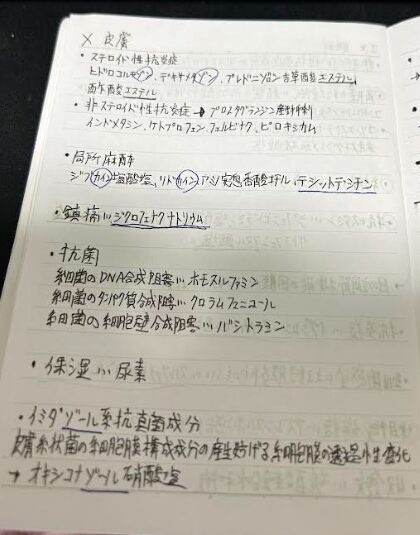 × 皮膚
・ステロイド性抗炎症
ヒドロコルチゾン、デキサメタゾン、プレドニゾロン吉草酸エステル、
酢酸エステル
・非ステロイド性抗炎症 → プロスタグランジン産生抑制
インドメタシン、ケトプロフェン、フェルビナク、ピロキシカム
・局所麻酔
ジブカイン塩酸塩、リドカイン、アミノ安息香酸エチル、テシットデシチン
・鎮痛…ジクロフェナクナトリウム
・抗菌
細菌のDNA合成阻害…ホモスルファミン
細菌のタンパク質合成阻害…クロラムフェニコール
細菌の細胞壁合成阻害…バシトラシン
・保湿…尿素
・イミダゾール系抗真菌成分
皮膚糸状菌の細胞膜構成成分の産生妨げる 細胞膜の透過性変化
→ オキシコナゾール硝酸塩